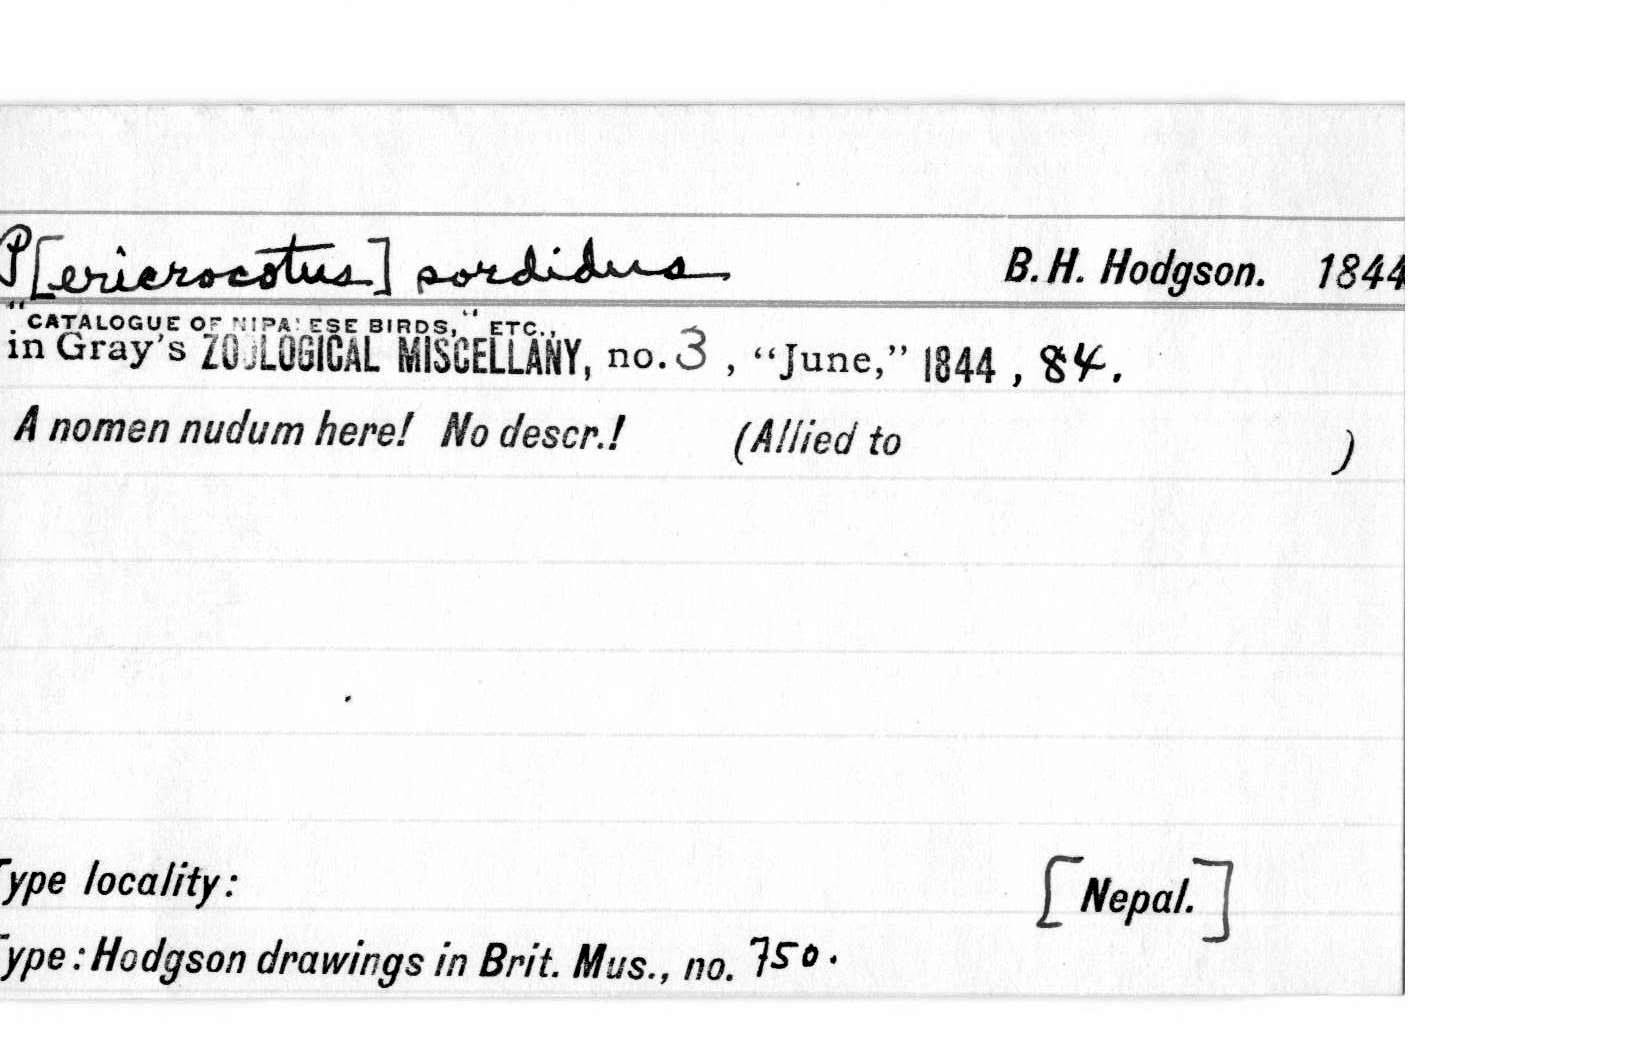 P[ericrocotus] sordidus B. H. Hodgson. 1844
"CATALOGUE OF NIPALESE BIRDS," ETC.,
in Gray's ZOOLOGICAL MISCELLANY, no. 3, “June,” 1844, 84.
A nomen nudum here! No descr.! (Allied to )
Type locality: [Nepal.]
Type: Hodgson drawings in Brit. Mus., no. 750.